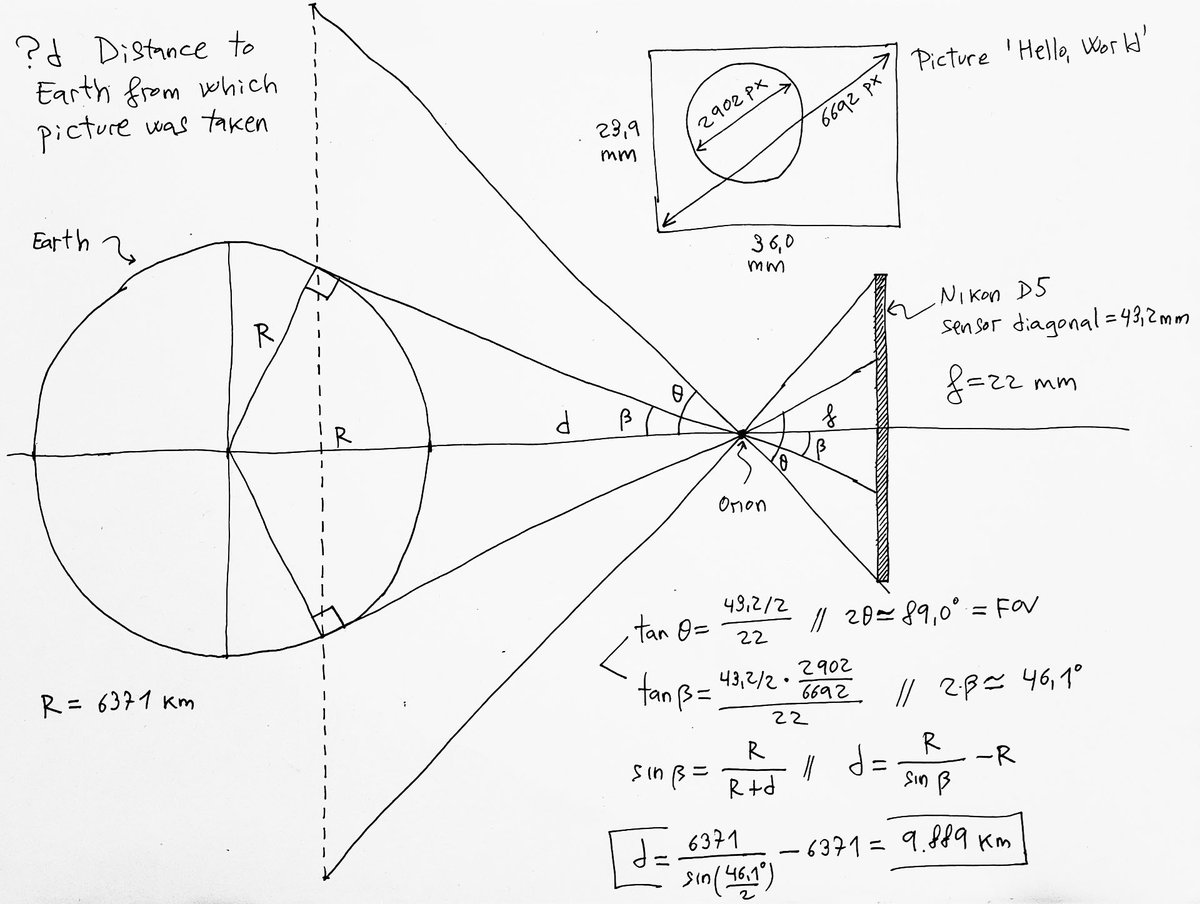 ?d Distance to
Earth from which
picture was taken
Picture 'Hello, World'
2902 px
6692 px
23,9
mm
36,0
mm
Earth
Nikon D5
sensor diagonal = 43,2 mm
f = 22 mm
R
R
d
β
θ
f
θ
β
Orion
R = 6371 km
tan θ = (43,2/2)/22 // 2θ ≃ 89,0° = FOV
tan β = (43,2/2 · 2902/6692)/22 // 2·β ≃ 46,1°
sin β = R/(R+d) // d = R/sin β − R
d = 6371/sin(46,1°/2) − 6371 = 9.889 km